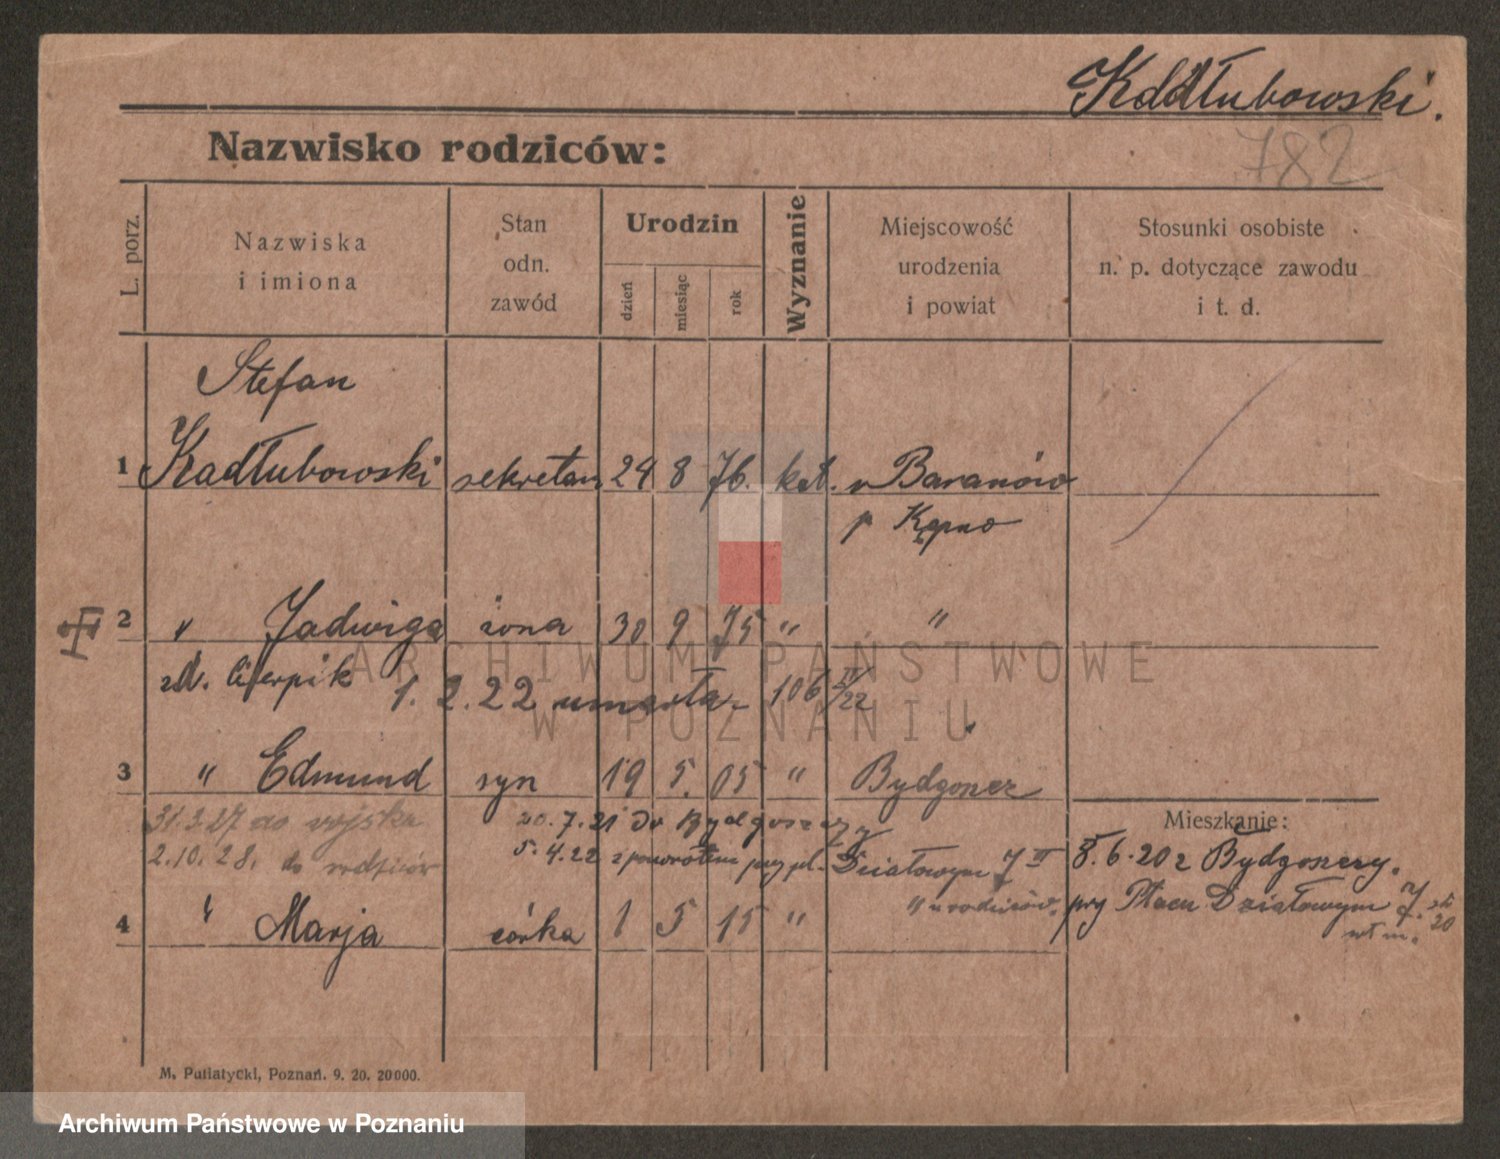 Kadłubowski.
782
Nazwisko rodziców:
L. porz.
Nazwiska i imiona
Stan odn. zawód
Urodzin
dzień
miesiąc
rok
Wyznanie
Miejscowość urodzenia i powiat
Stosunki osobiste n. p. dotyczące zawodu i t. d.
Stefan
1 Kadłubowski sekretarz 24 8 76. kat. Baranów
p Kępno
2 " Jadwiga żona 30 9 75 " "
zd. Cierpik
1. 2. 22 umarła 106 IV/22
3 " Edmund syn 19 5. 05 " Bydgoszcz
31.3.27 do wojska
20.7.21 do Bydgoszczy
2.10.28. do rodziców
5.4.22 z powrotem przy pl. Działowym 7 II
" u rodziców.
4 " Marja córka 1 5 15 "
Mieszkanie:
8.6.20 z Bydgoszczy.
przy Placu Działowym 7
M. Putiatycki, Poznań. 9. 20. 20000.
ARCHIWUM PAŃSTWOWE
W POZNANIU
Archiwum Państwowe w Poznaniu